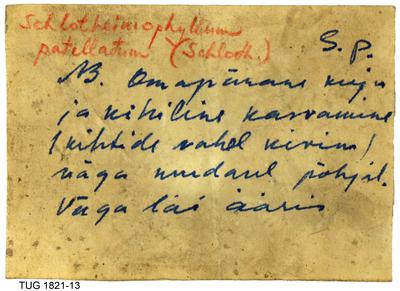 Schlotheimophyllum
patellatum (Schloth.)
S. p.
NB. Omapärane kuju
ja kihiline kasvamine
(kihtide vahel kivim)
väga mudasel põhjal.
Väga lai ääris
TUG 1821-13